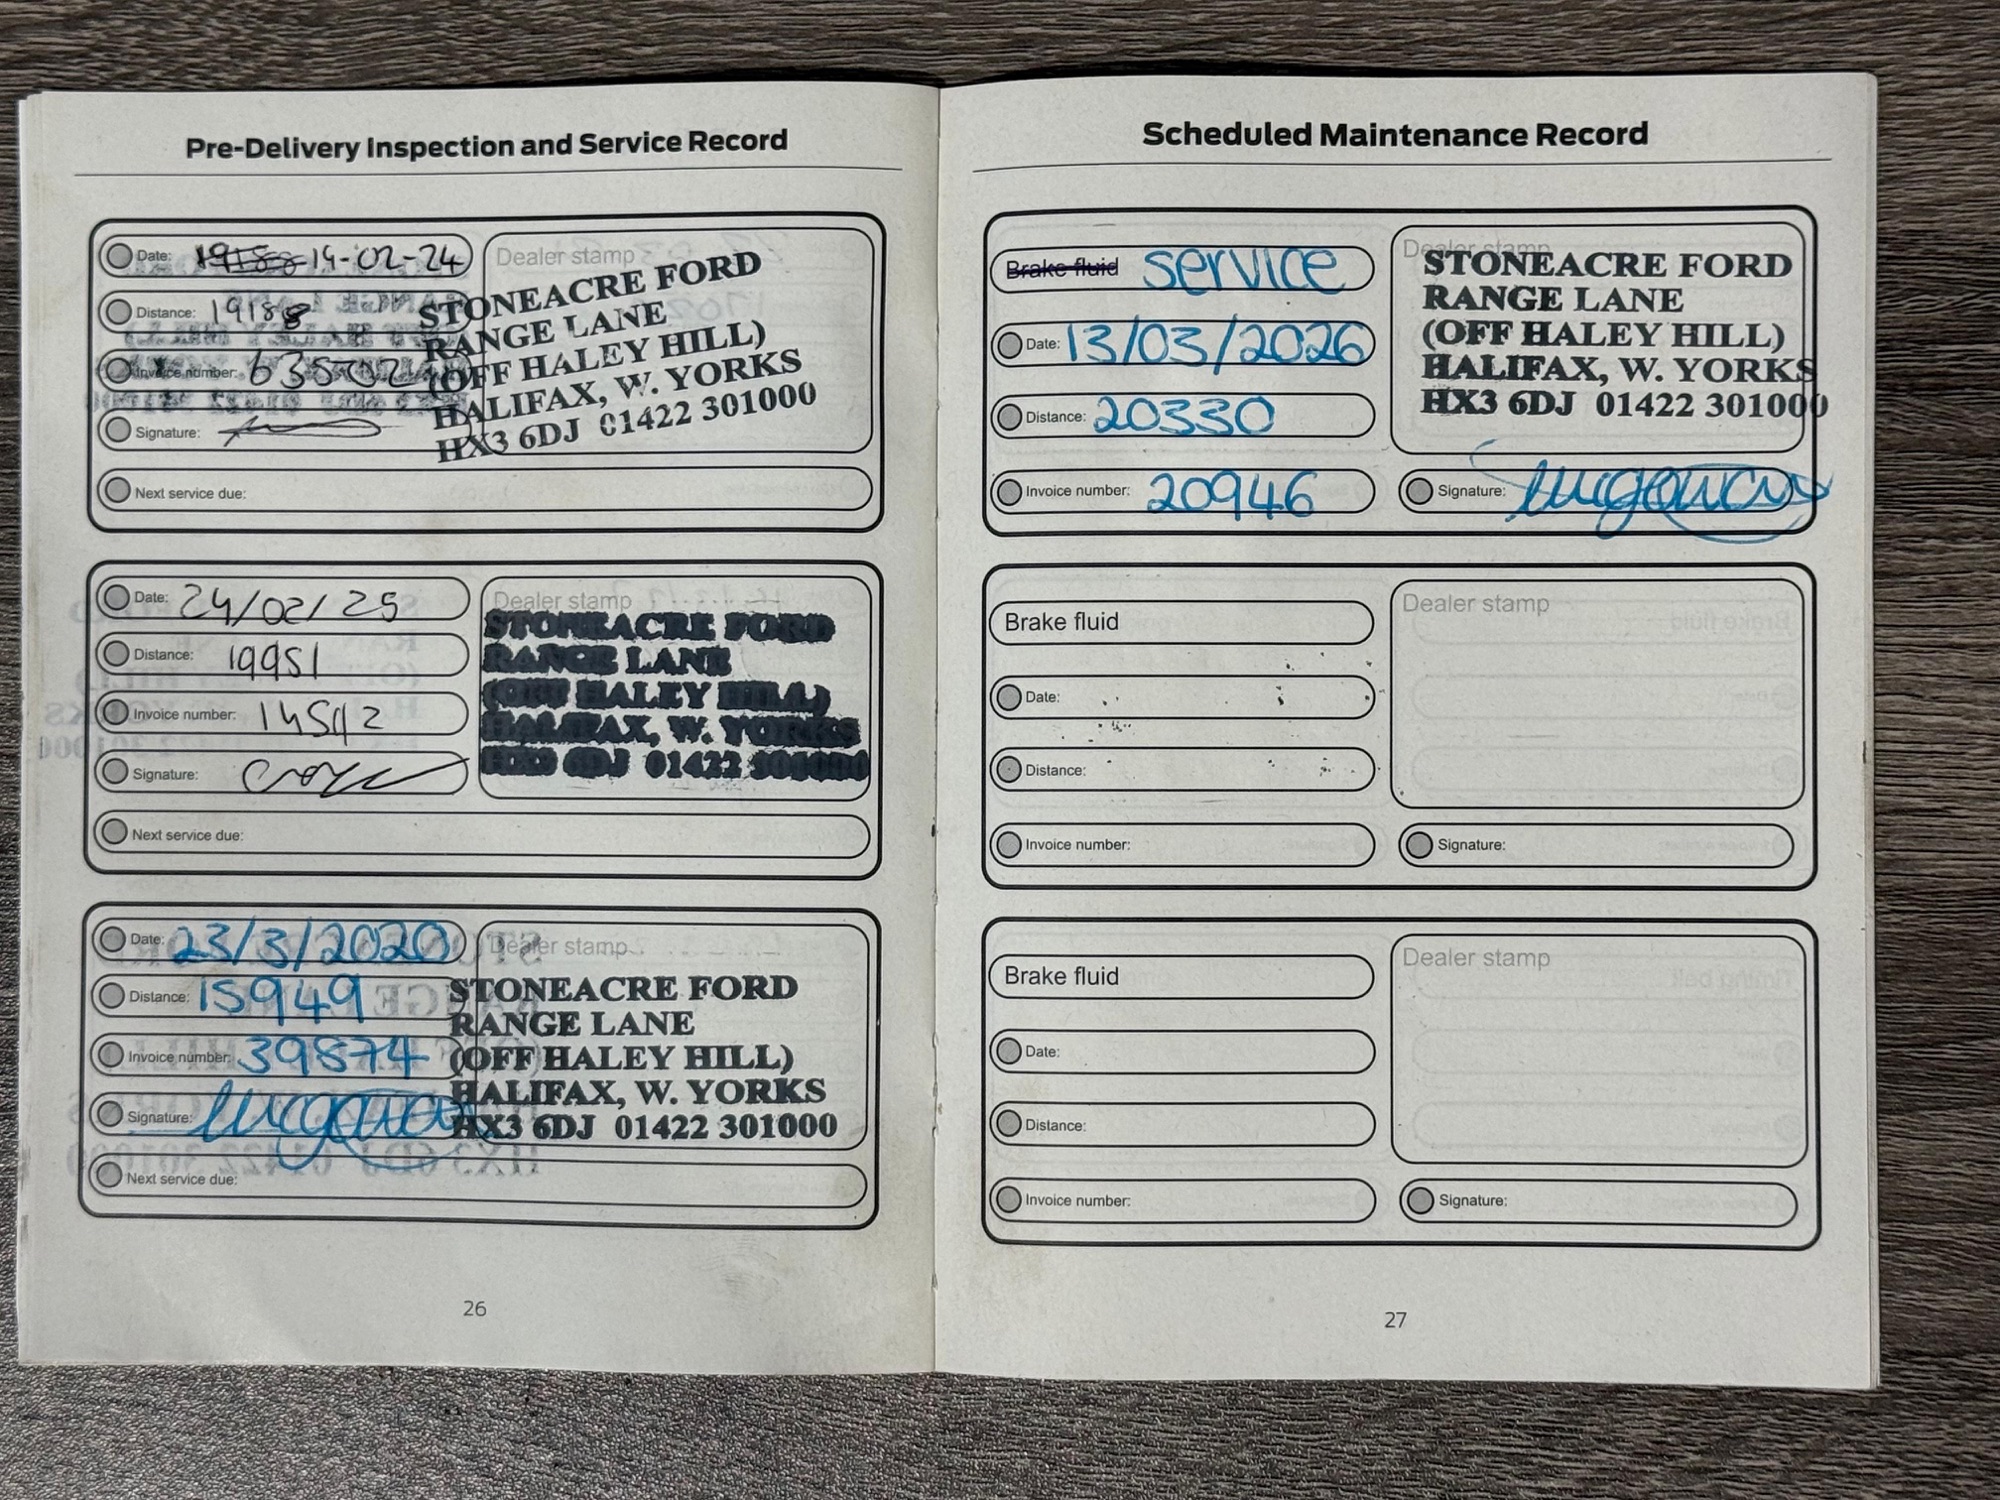 Pre-Delivery Inspection and Service Record
Date: 19188 14-02-24
Distance: 19188
Invoice number: 63502
Signature:
Next service due:
Dealer stamp
STONEACRE FORD
RANGE LANE
(OFF HALEY HILL)
HALIFAX, W. YORKS
HX3 6DJ 01422 301000
Date: 24/02/25
Distance: 19951
Invoice number: 14542
Signature:
Next service due:
Dealer stamp
STONEACRE FORD
RANGE LANE
(OFF HALEY HILL)
HALIFAX, W. YORKS
HX3 6DJ 01422 301000
Date: 23/3/2020
Distance: 15949
Invoice number: 39874
Signature:
Next service due:
Dealer stamp
STONEACRE FORD
RANGE LANE
(OFF HALEY HILL)
HALIFAX, W. YORKS
HX3 6DJ 01422 301000
26
Scheduled Maintenance Record
Brake fluid service
Date: 13/03/2026
Distance: 20330
Invoice number: 20946
Dealer stamp
STONEACRE FORD
RANGE LANE
(OFF HALEY HILL)
HALIFAX, W. YORKS
HX3 6DJ 01422 301000
Signature:
Brake fluid
Date:
Distance:
Invoice number:
Dealer stamp
Signature:
Brake fluid
Date:
Distance:
Invoice number:
Dealer stamp
Signature:
27